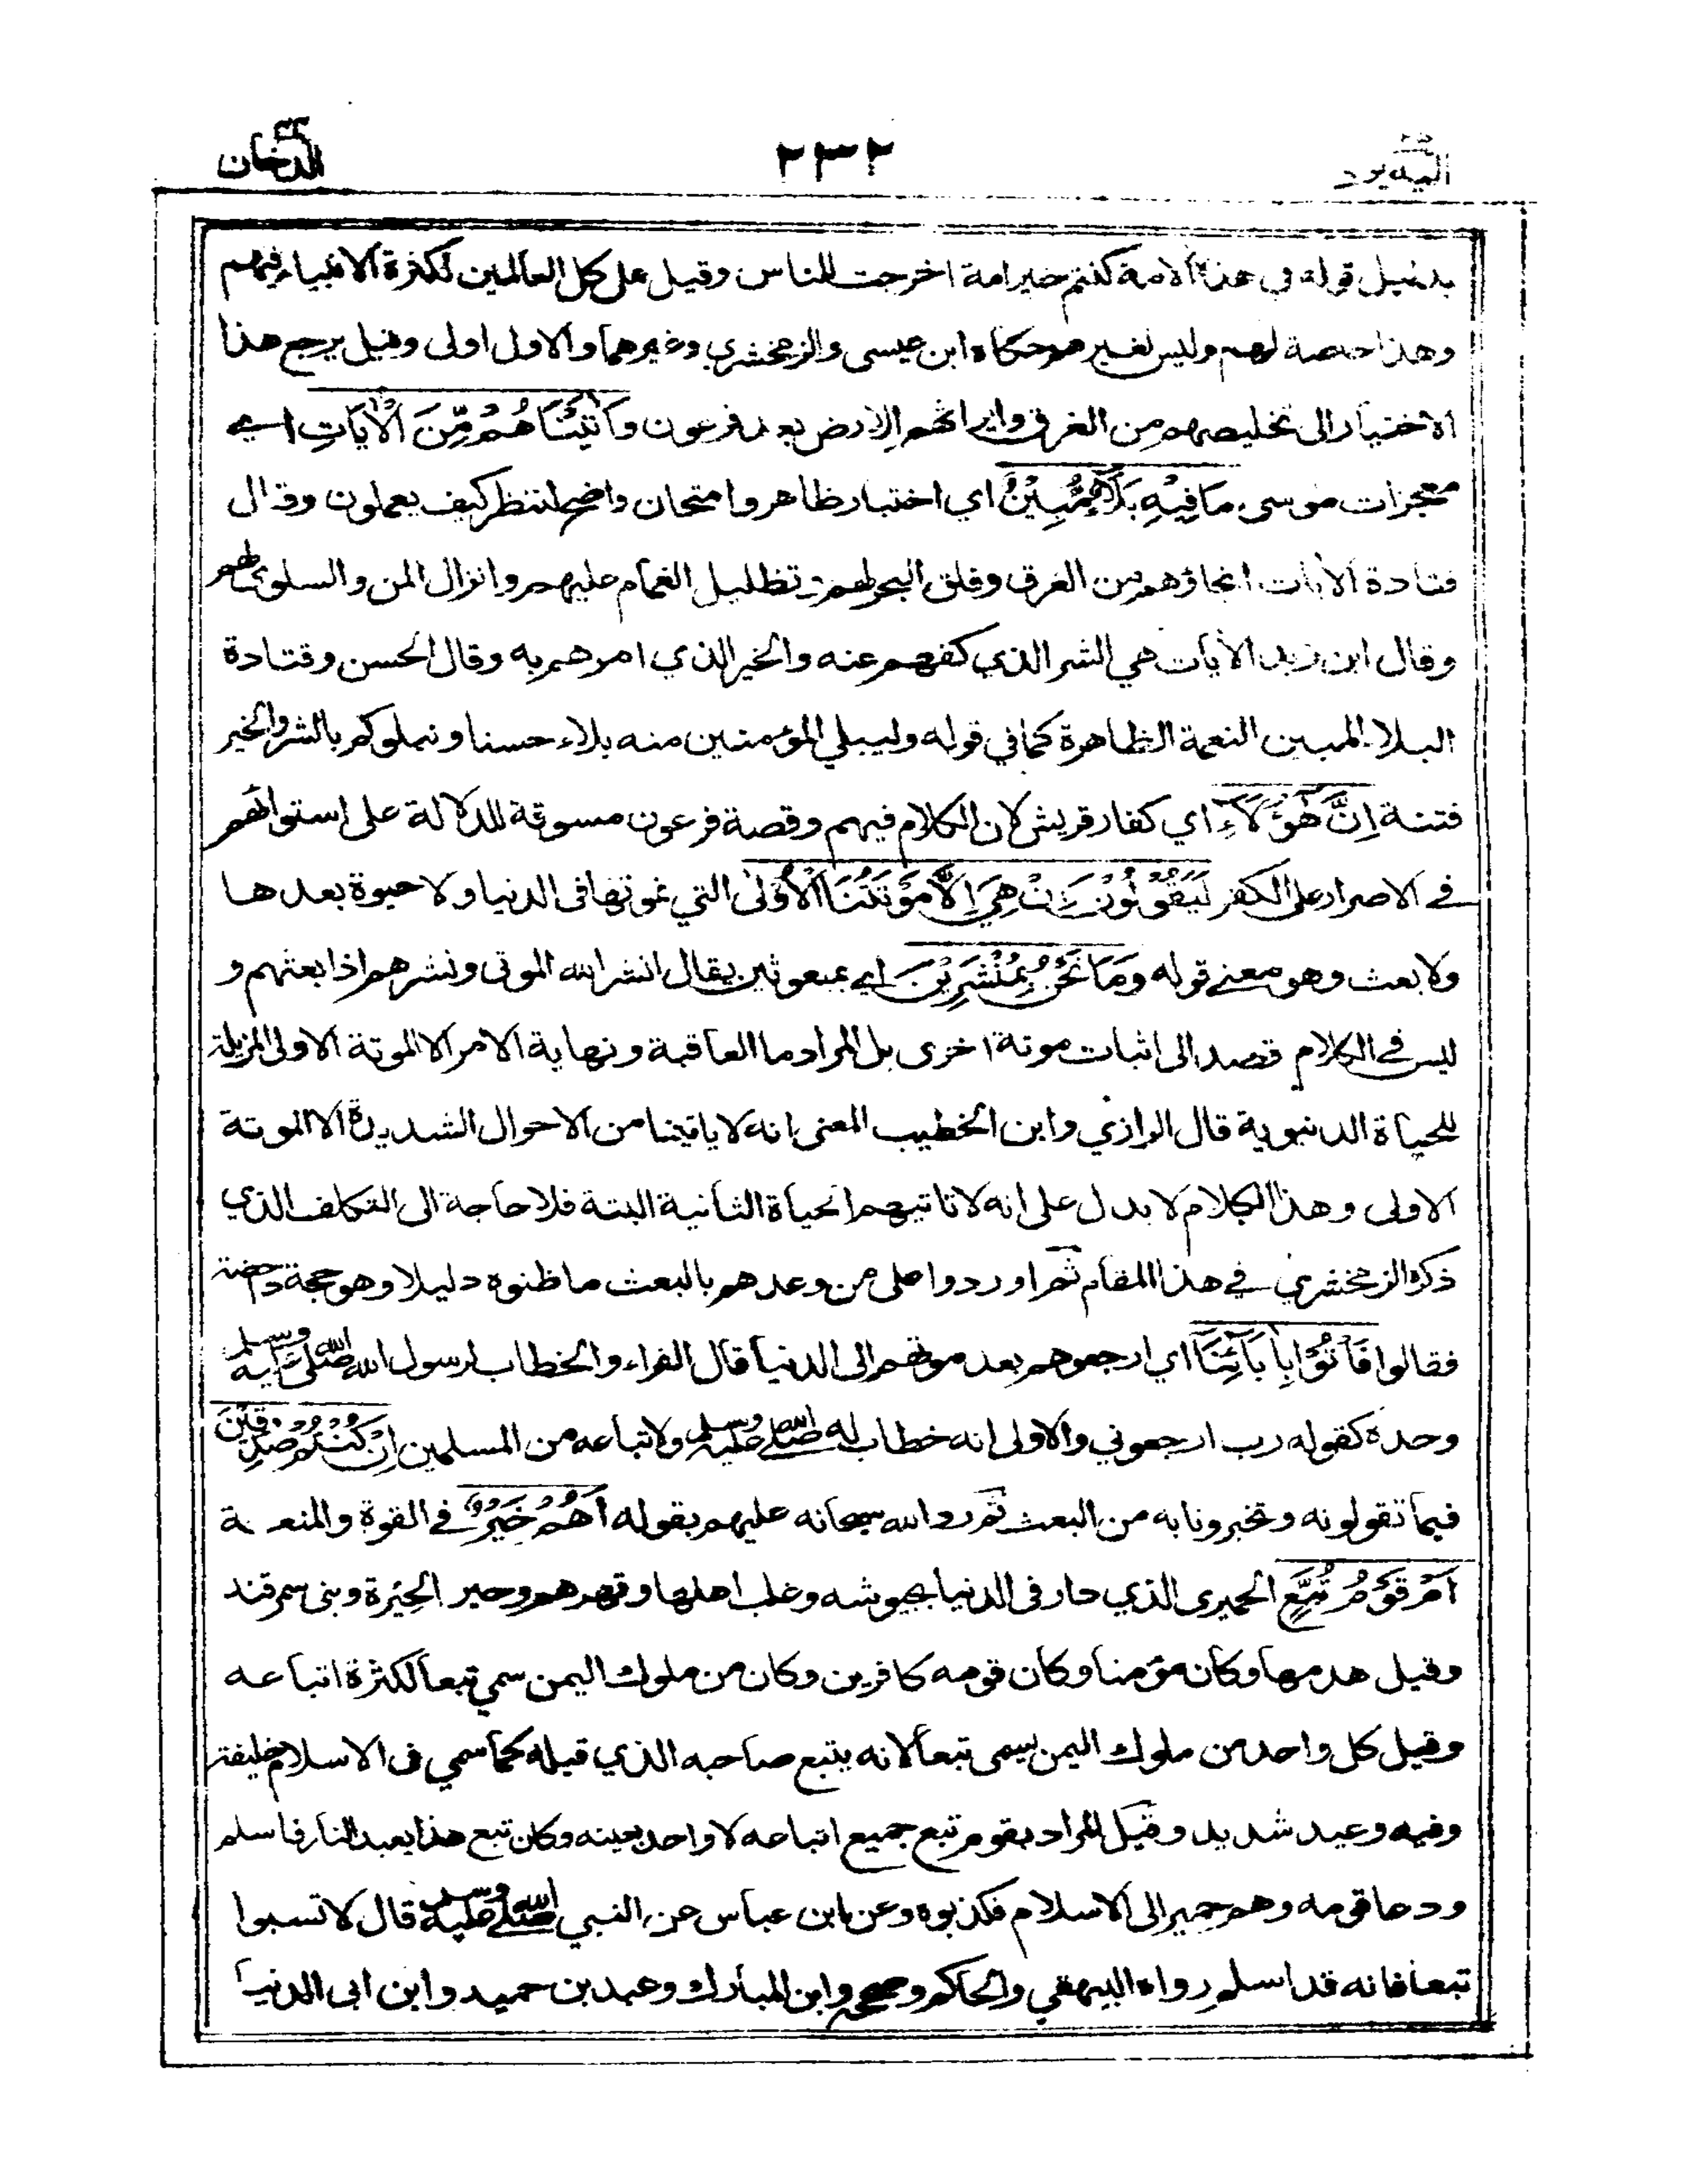 اليه يرد ٢٥ ٢٣٢ الدخان ٤٤
بدليل قوله في هذه الامة كنتم خير امة اخرجت للناس وقيل على كل العالمين لكثرة الانبياء فيهم
وهذا خاصة لهم وليس لغيرهم حكاه ابن عيسى والزمخشري وغيرهما والاول اولى وقيل يرجع هذا
الاختيار الى تخليصهم من الغرق وايراثهم الارض بعد فرعون وَاٰتَيْنَاهُمْ مِّنَ الْاٰيَاتِ اي
معجزات موسى مَا فِيْهِ بَلَاءٌ مُّبِيْنٌ اي اختبار ظاهر وامتحان واضح لننظر كيف يعملون وقال
قتادة الآيات انجاؤهم من الغرق وفلق البحر لهم وتظليل الغمام عليهم وانزال المن والسلوى لهم
وقال ابن زيد الآيات هي الشر الذي كفهم عنه والخير الذي امرهم به وقال الحسن وقتادة
البلاء المبين النعمة الظاهرة كما في قوله وليبلي المؤمنين منه بلاء حسنا ونبلوكم بالشر والخير
فتنة اِنَّ هٰؤُلَاءِ اي كفار قريش لان الكلام فيهم وقصة فرعون مسوقة للدلالة على استوائهم
في الاصرار على الكفر لَيَقُوْلُوْنَ اِنْ هِيَ اِلَّا مَوْتَتُنَا الْاُوْلٰى التي نموتها فى الدنيا ولا حيوة بعدها
ولا بعث وهو معنى قوله وَمَا نَحْنُ بِمُنْشَرِيْنَ اي بمبعوثين يقال انشر الله الموتى ونشرهم اذا بعثهم و
ليس في الكلام قصد الى اثبات موتة اخرى بل المراد ما العاقبة ونهاية الامر الا الموتة الاولى المزيلة
للحياة الدنيوية قال الرازي وابن الخطيب المعنى انه لا ياتينا من الاحوال الشديدة الا الموتة
الاولى وهذا الكلام لا يدل على انه لا تاتيهم الحياة الثانية البتة فلا حاجة الى التكلف الذي
ذكره الزمخشري في هذا المقام ثم اوردوا على من وعدهم بالبعث ما ظنوه دليلا وهو حجة داحضة
فقالوا فَأْتُوْا بِاٰبَآئِنَا اي ارجعوهم بعد موتهم الى الدنيا قال الفراء والخطاب لرسول الله صلى الله عليه وسلم
وحده كقوله رب ارجعوني والاولى انه خطاب له صلى الله عليه وسلم ولاتباعه من المسلمين اِنْ كُنْتُمْ صٰدِقِيْنَ
فيما تقولونه وتخبرونا به من البعث ثم رد الله سبحانه عليهم بقوله أَهُمْ خَيْرٌ في القوة والمنعة
اَمْ قَوْمُ تُبَّعٍ الحميرى الذي دار فى الدنيا بجيوشه وغلب اهلها وقهرهم وحير الحيرة وبنى سمرقند
وقيل هدمها وكان مؤمنا وكان قومه كافرين وكان من ملوك اليمن سمي تبعا لكثرة اتباعه
وقيل كل واحد من ملوك اليمن يسمى تبعا لانه يتبع صاحبه الذي قبله كما سمي فى الاسلام خليفة
وفيه وعيد شديد وقيل المراد بقوم تبع جميع اتباعه لا واحد بعينه وكان تبع هذا يعبد النار فاسلم
ودعا قومه وهم حمير الى الاسلام فكذبوه وعن ابن عباس عن النبي صلى الله عليه وسلم قال لا تسبوا
تبعا فانه قد اسلم رواه البيهقي والحاكم وصححه وابن المبارك وعبد بن حميد وابن ابى الدنيا